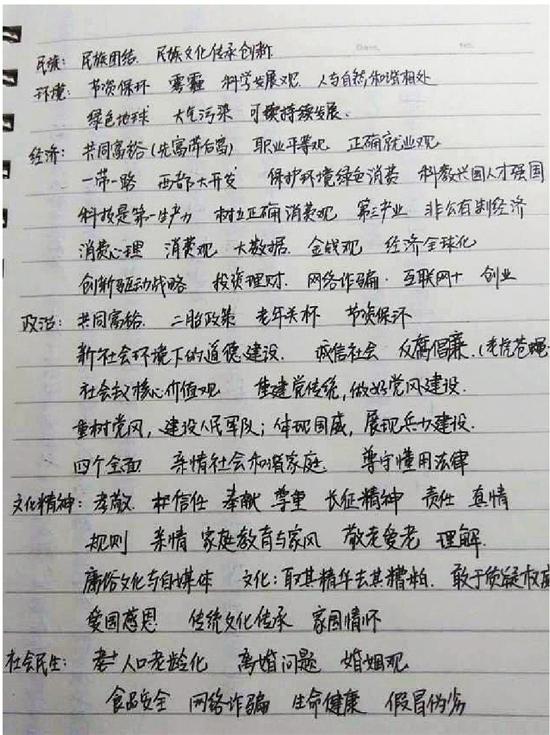 民族: 民族团结 民族文化传承创新
环境: 节资保环 雾霾 科学发展观 人与自然和谐相处
绿色地球 大气污染 可持续发展.
经济: 共同富裕(先富带后富) 职业平等观 正确就业观
一带一路 西部大开发 保护环境绿色消费 科教兴国人才强国
科技是第一生产力 树立正确消费观 第三产业 非公有制经济
消费心理 消费观 大数据 金钱观 经济全球化
创新驱动战略 投资理财. 网络诈骗. 互联网+ 创业
政治: 共同富裕. 二胎政策 老年关怀 节资保环
新社会环境下的道德建设. 诚信社会 反腐倡廉.(老虎苍蝇
社会主义核心价值观 重建党传统,做好党风建设.
重树党风,建设人民军队;体现国威,展现兵力建设.
四个全面 亲情社会和谐家庭 尊守懂用法律
文化精神: 孝敬. 信任 奉献 尊重 长征精神 责任 真情
规则 亲情 家庭教育与家风 敬老爱老 理解.
庸俗文化与自媒体 文化:取其精华去其糟粕. 敢于质疑权威
爱国感恩 传统文化传承 家国情怀
社会民生: 人口老龄化 离婚问题 婚姻观
食品安全 网络诈骗 生命健康 假冒伪劣